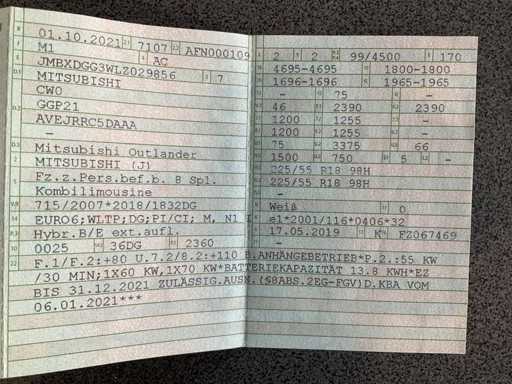 01.10.2021 7107 AFN000109
M1 AC
JMBXDGG3WLZ029856 7
MITSUBISHI
CW0
GGP21
AVEJRRC5DAAA
-
Mitsubishi Outlander
MITSUBISHI (J)
Fz.z.Pers.bef.b. 8 Spl.
Kombilimousine
715/2007*2018/1832DG
EURO6;WLTP;DG;PI/CI; M, N1 I
Hybr.B/E ext.aufl.
0025 36DG 2360
2 2 99/4500 170
4695-4695 1800-1800
1696-1696 1965-1965
- 75 -
46 2390 2390
1200 1255 -
1200 1255 -
75 3375 66
1500 750 5 -
225/55 R18 98H
225/55 R18 98H
Weiß 0
e1*2001/116*0406*32
17.05.2019 K FZ067469
-
F.1/F.2:+80 U.7.2/8.2:+110 B.ANHÄNGEBETRIEB*P.2.:55 KW
/30 MIN;1X60 KW,1X70 KW*BATTERIEKAPAZITÄT 13.8 KWH*EZ
BIS 31.12.2021 ZULÄSSIG.AUSN.(§8ABS.2EG-FGV)D.KBA VOM
06.01.2021***